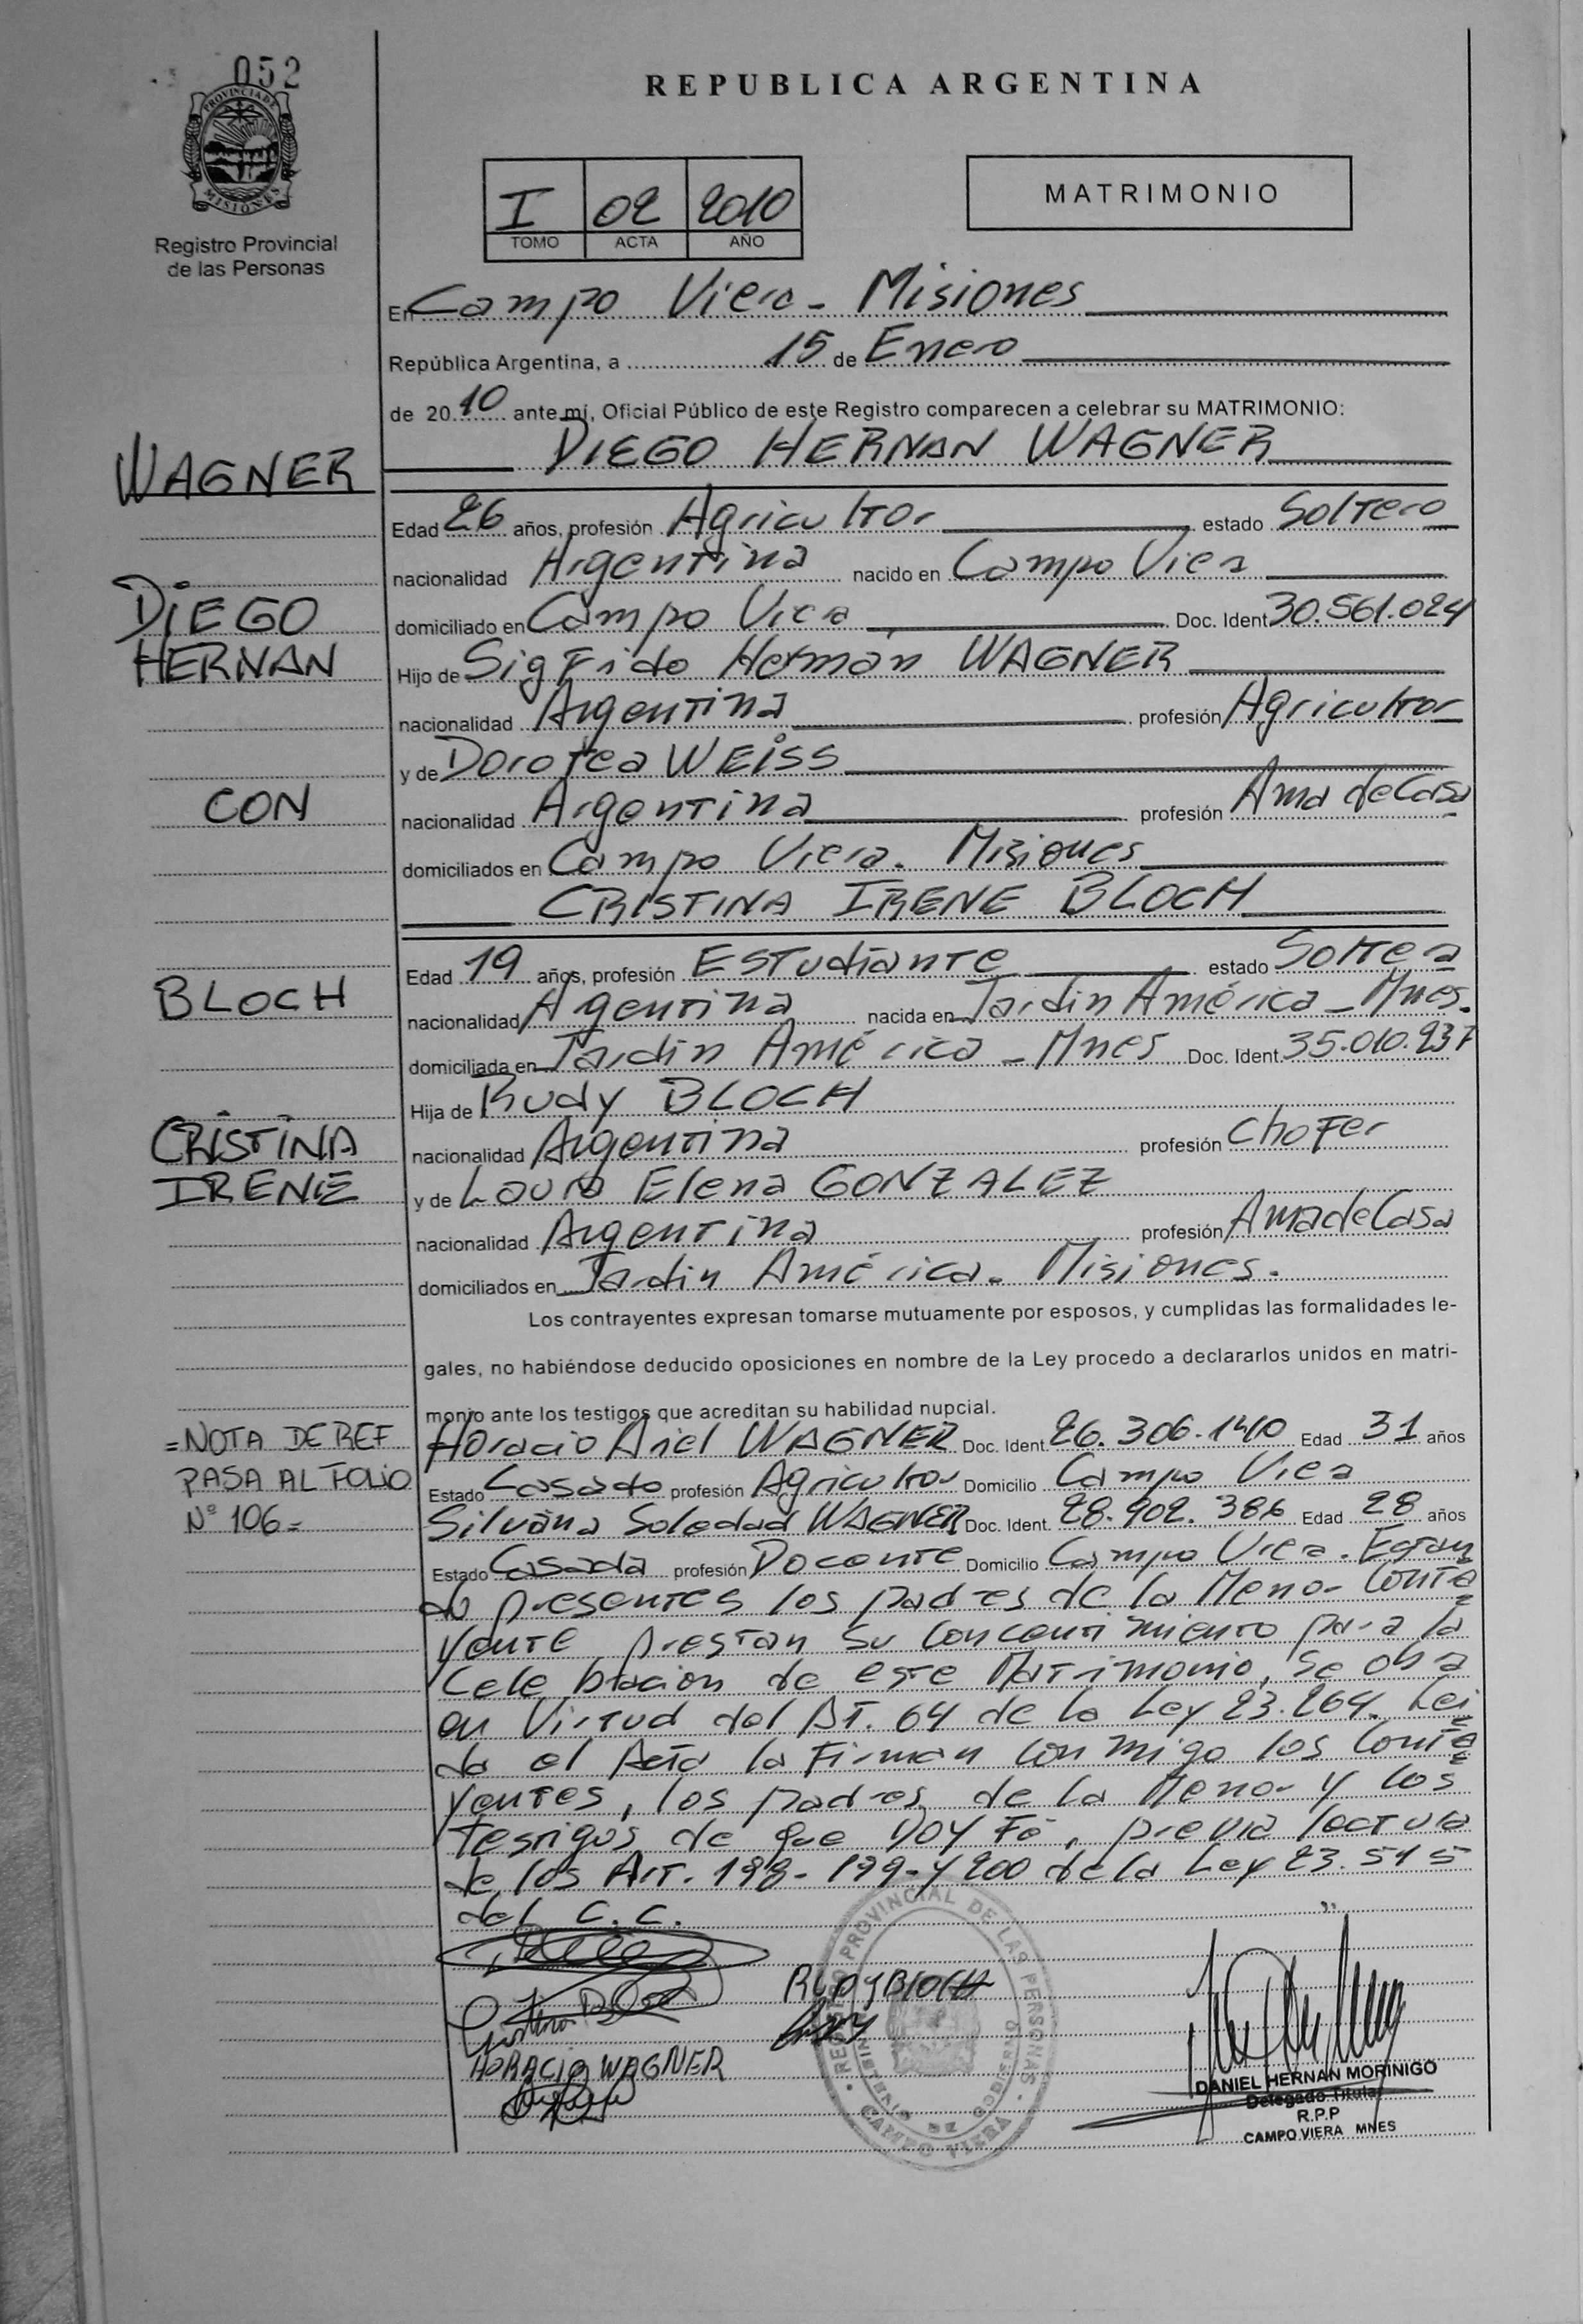 052
PROVINCIA DE
MISIONES
Registro Provincial
de las Personas
REPUBLICA ARGENTINA
I 02 2010
TOMO ACTA AÑO
MATRIMONIO
En Campo Viera - Misiones
República Argentina, a 15 de Enero
de 20 10 ante mí, Oficial Público de este Registro comparecen a celebrar su MATRIMONIO:
DIEGO HERNAN WAGNER
WAGNER
Edad 26 años, profesión Agricultor estado Soltero
nacionalidad Argentina nacido en Campo Viera
DIEGO
domiciliado en Campo Viera Doc. Ident. 30.561.024
HERNAN
Hijo de Sigfrido Hernán WAGNER
nacionalidad Argentina profesión Agricultor
y de Dorotea WEISS
CON
nacionalidad Argentina profesión Ama de Casa
domiciliados en Campo Viera. Misiones
CRISTINA IRENE BLOCH
Edad 19 años, profesión Estudiante estado Soltera
BLOCH
nacionalidad Argentina nacida en Jardin América - Mnes.
domiciliada en Jardin América - Mnes Doc. Ident. 35.010.237
Hija de Rudy BLOCH
CRISTINA
nacionalidad Argentina profesión Chofer
IRENE
y de Laura Elena GONZALEZ
nacionalidad Argentina profesión Ama de Casa
domiciliados en Jardin América. Misiones.
Los contrayentes expresan tomarse mutuamente por esposos, y cumplidas las formalidades le-
gales, no habiéndose deducido oposiciones en nombre de la Ley procedo a declararlos unidos en matri-
monio ante los testigos que acreditan su habilidad nupcial.
=NOTA DE REF
PASA AL FOLIO
Nº 106=
Horacio Ariel WAGNER Doc. Ident. 26.306.140 Edad 31 años
Estado Casado profesión Agricultor Domicilio Campo Viera
Silvana Soledad WAGNER Doc. Ident. 28.902.386 Edad 28 años
Estado Casada profesión Docente Domicilio Campo Viera. Estan
do presentes los padres de la Menor Contra
yente prestan su concentimiento para la
Celebración de este Matrimonio, se obra
en Virtud del Art. 64 de la Ley 23.264. Lei
da el Acta la Firman conmigo los Contra
yentes, los padres de la Menor y los
Testigos de que Doy Fé, previa lectura
de los Art. 198-199-y 200 de la Ley 23.515
del C.C.
RUDY BLOCH
HORACIO WAGNER
REGISTRO PROVINCIAL DE LAS PERSONAS
MINISTERIO DE GOBIERNO
CAMPO VIERA
DANIEL HERNAN MORINIGO
Delegado Titular
R.P.P
CAMPO VIERA MNES